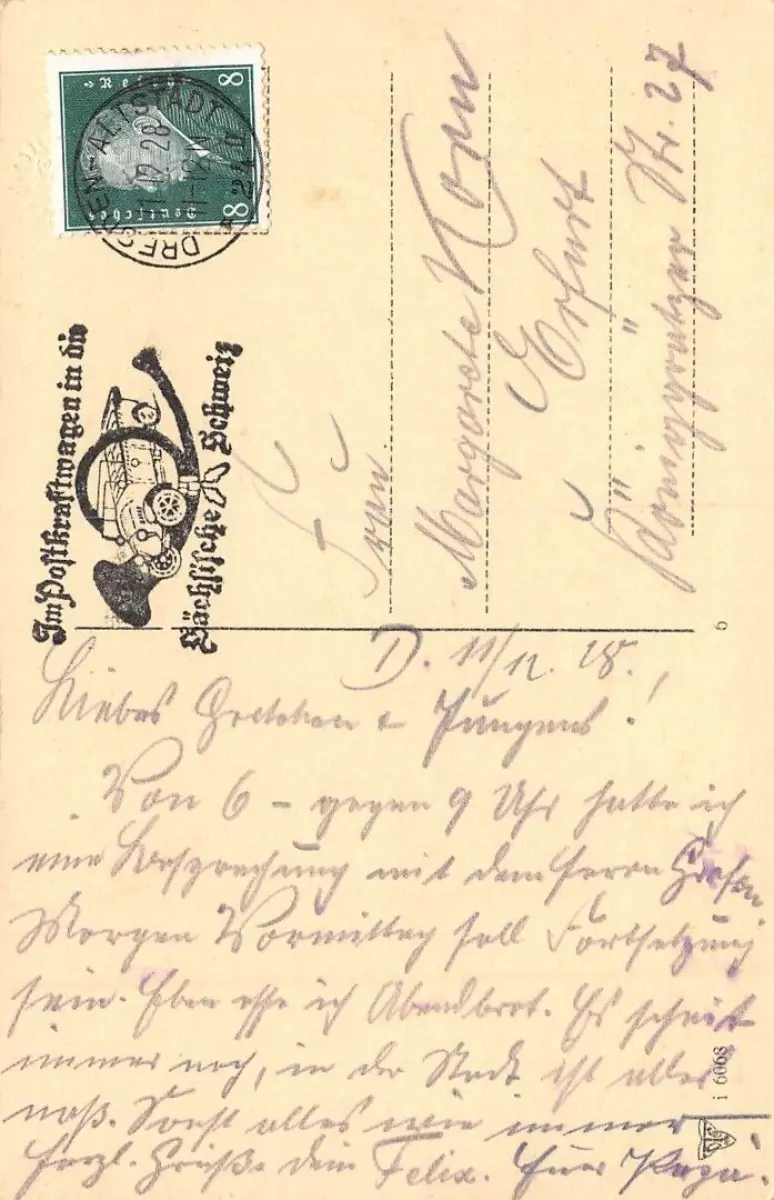 8 8
Deutsches Reich
DRESDEN-ALTSTADT
11.12.28
11-12 N
* 24 n
Im Postkraftwagen in die
Sächsische Schweiz
Frau
Margarete Korn
Erfurt
Königgrätzer Str. 27
6
D. 11/12. 28.
Liebes Gretchen & Jungens!
Von 6 - gegen 9 Uhr hatte ich
eine Besprechung mit dem Herrn Grafen
Morgen Vormittag soll Fortsetzung
sein. Eben esse ich Abendbrot. Es schneit
immer noch, in der Stadt ist alles
naß. Sonst alles wie immer
herzl. Grüße dein Felix. Euer Papa.
i 6068